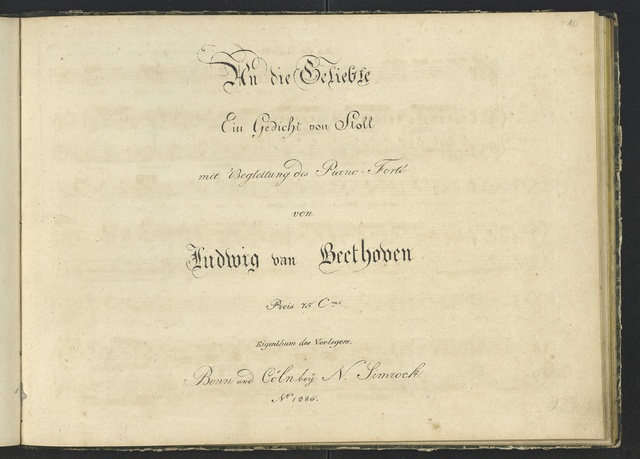 10
An die Geliebte
Ein Gedicht von Stoll
mit Begleitung des Piano-Forté
von
Ludwig van Beethoven
Preis 75 Cmes.
Eigenthum des Verlegers.
Bonn und Cöln bey N. Simrock
No 1286.